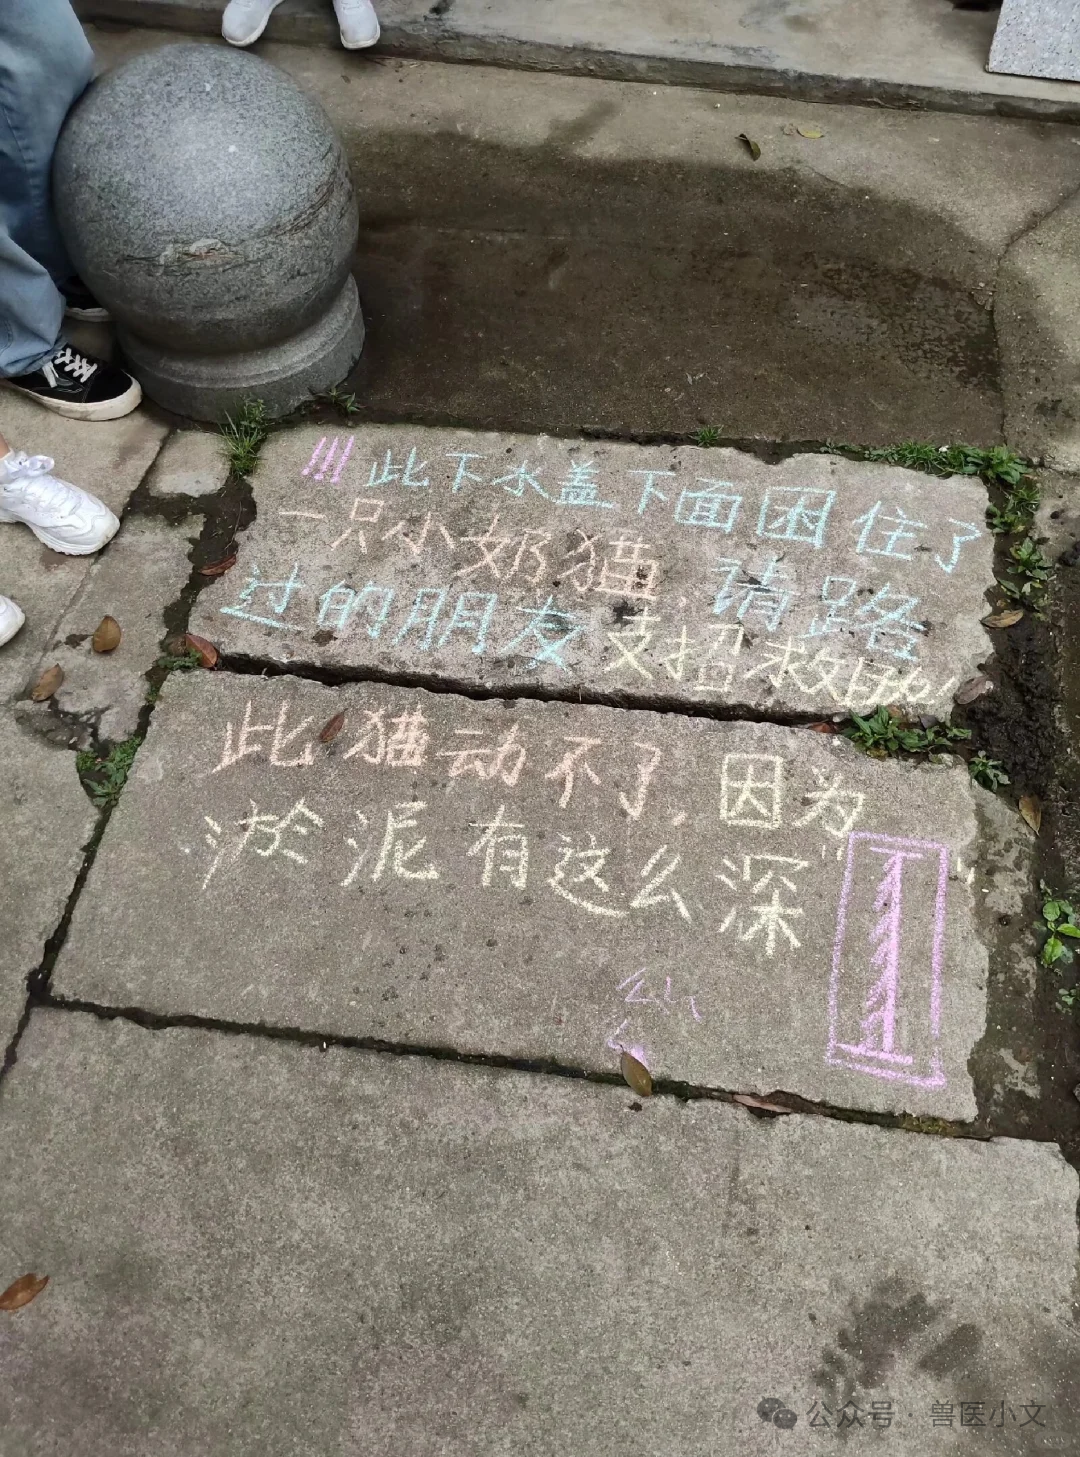 !!!此下水盖下面困住了
一只小奶猫,请路
过的朋友支招救助!
此猫动不了,因为
淤泥有这么深
公众号·兽医小文